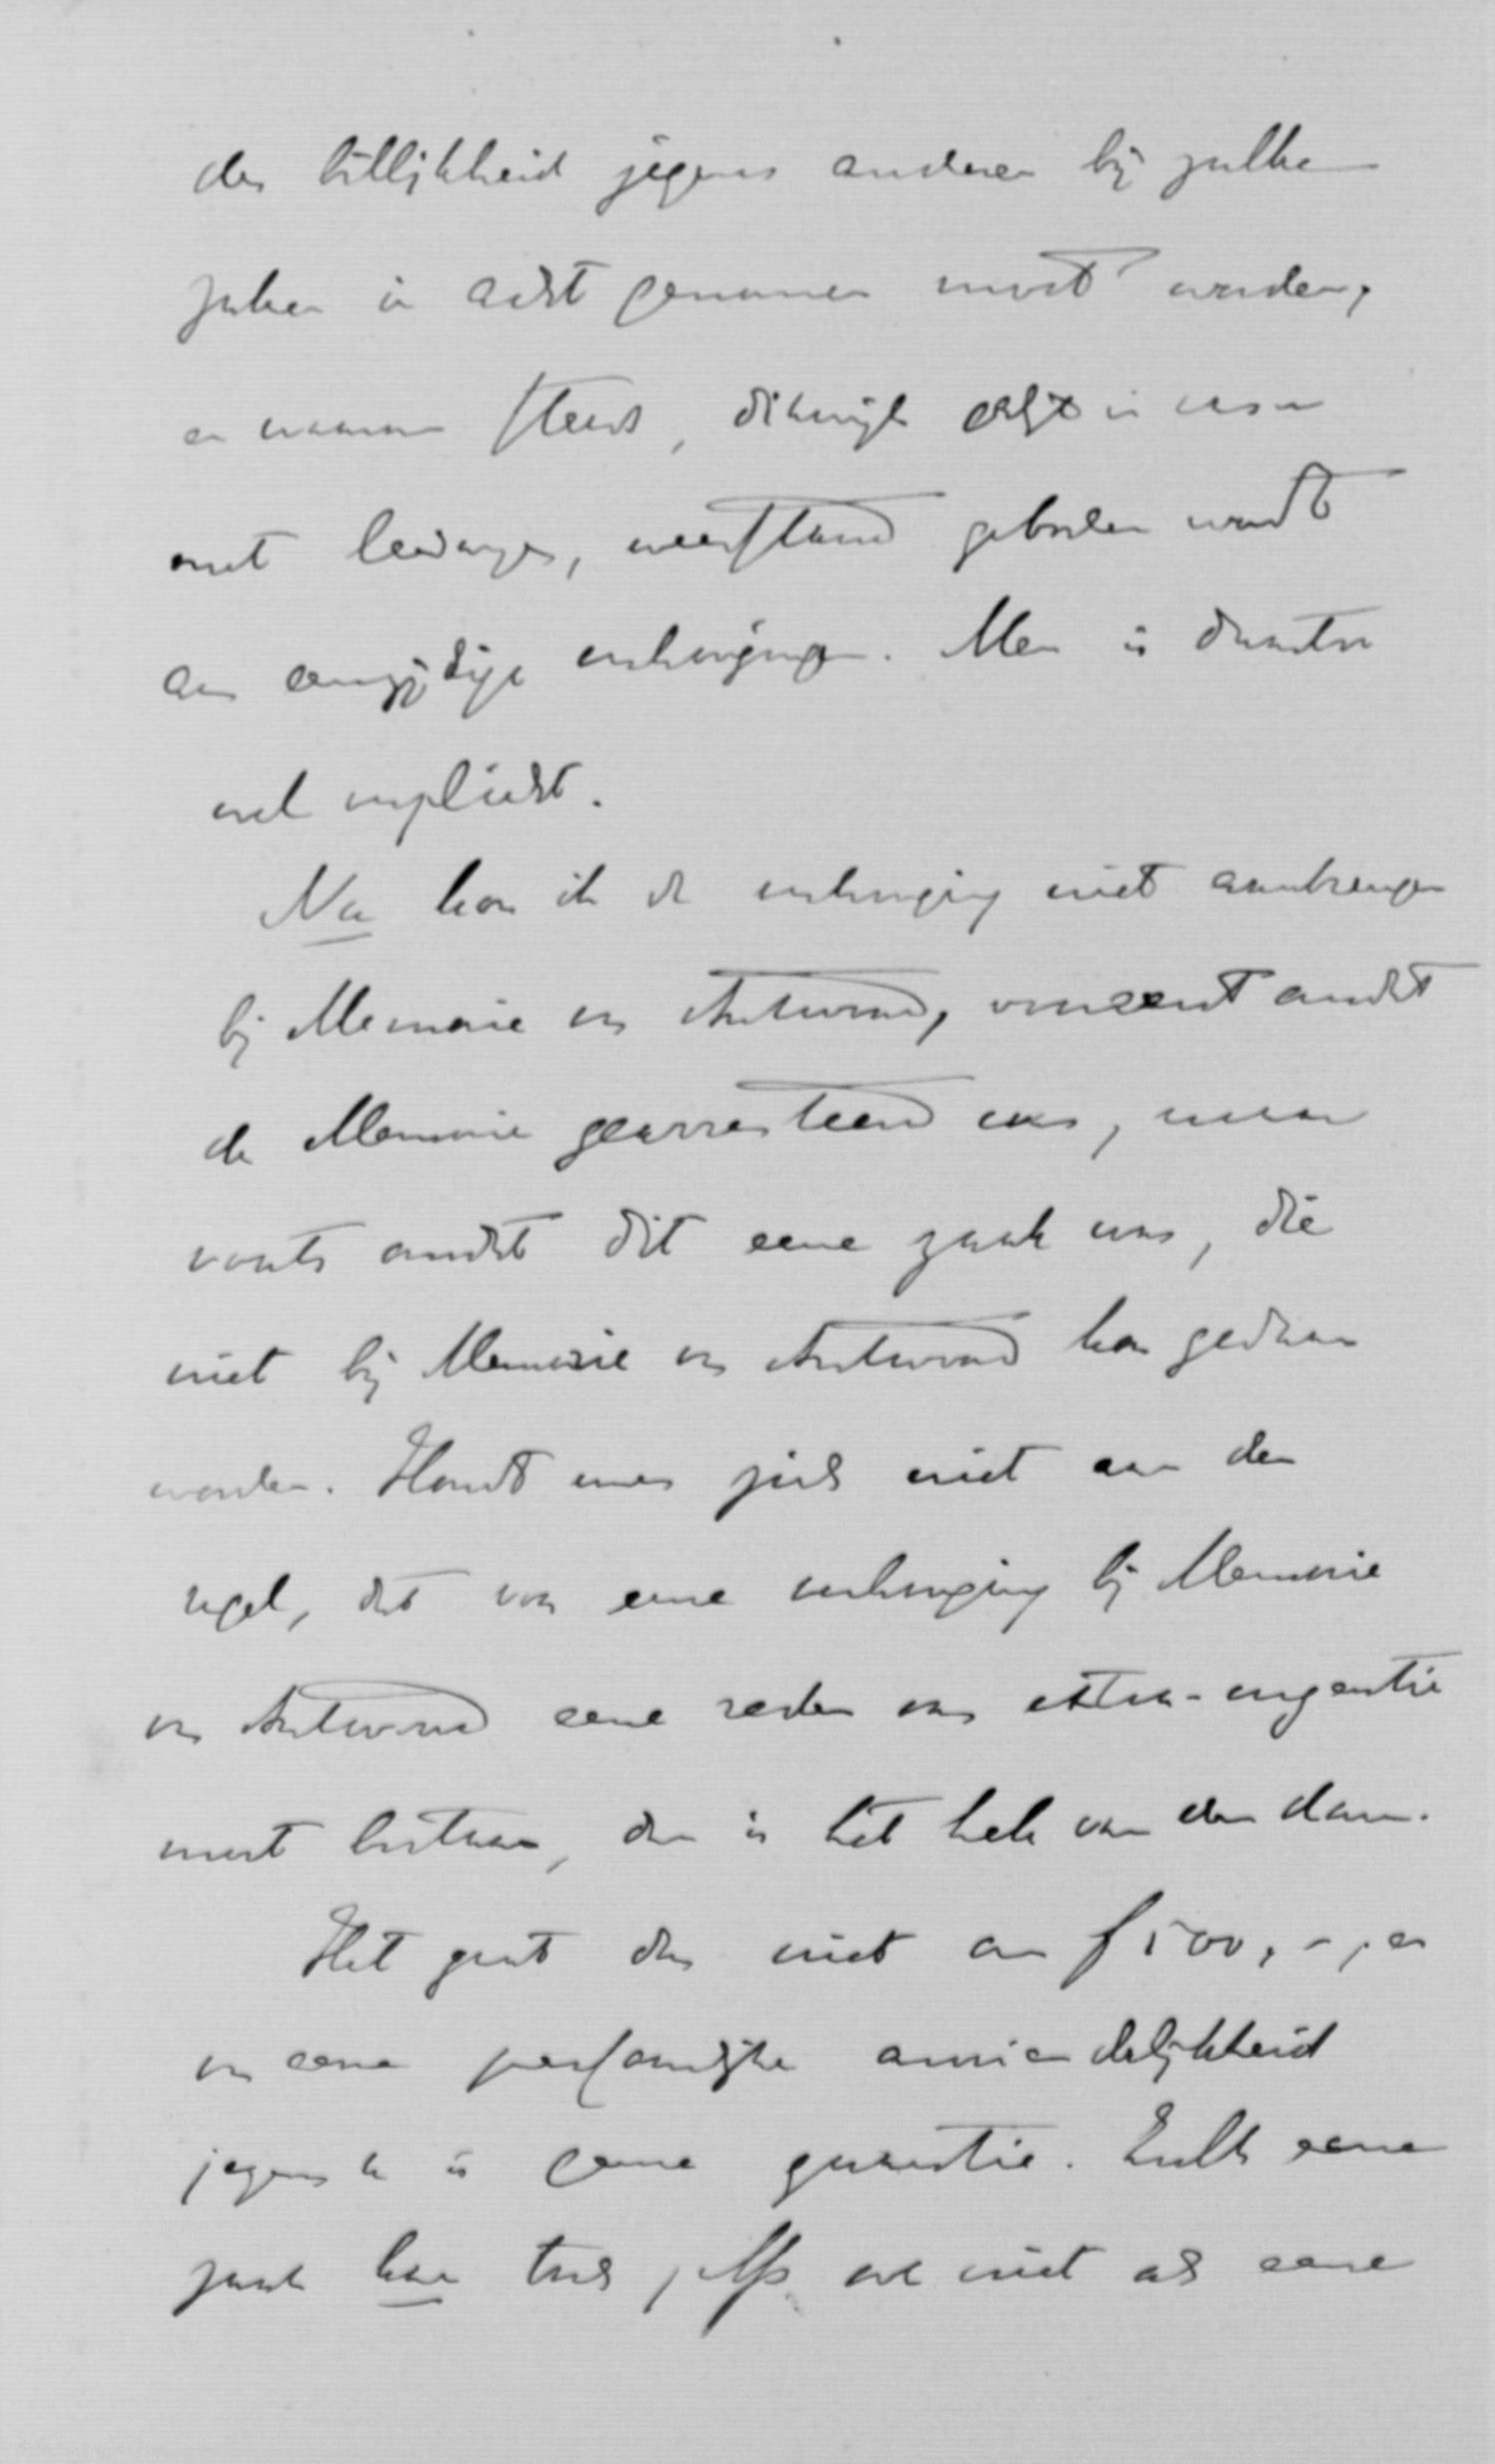 der billijkheid jegens anderen bij zulke
zaken in acht genomen moet worden,
en waarom steeds, dikwijls altijd in casu
met leedwezen, weerstand geboden wordt
aan eenzijdige verhoogingen. Men is daartoe
wel verplicht.
Nu kon ik de verhooging niet aanbrengen
bij Memorie van Antwoord, vooreerst omdat
de Memorie gearresteerd was, maar
voorts omdat dit eene zaak was, die
niet bij Memorie van Antwoord kon gedaan
worden. Houdt men zich niet aan den
regel, dat voor eene verhooging bij Memorie
van Antwoord eene reden van extra-urgentie
moet bestaan, dan is het hek van den dam.
Het gaat dus niet om f 500,-, en
van eene persoonlijke onvriendelijkheid
jegens u is geene quaestie. Zulk eene
zaak kan toch zelfs ook niet als eene